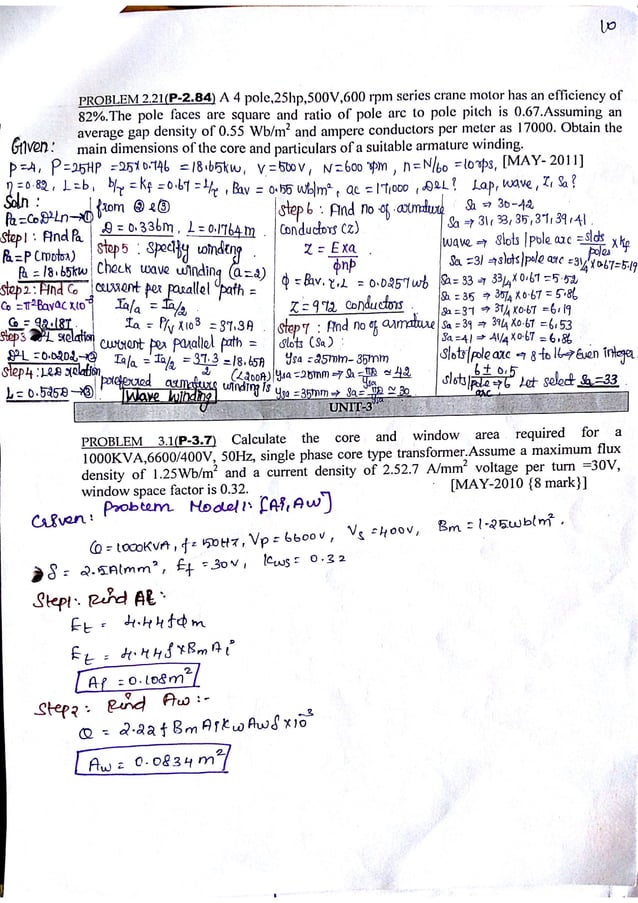 10
PROBLEM 2.21(P-2.84) A 4 pole,25hp,500V,600 rpm series crane motor has an efficiency of
82%.The pole faces are square and ratio of pole arc to pole pitch is 0.67.Assuming an
average gap density of 0.55 Wb/m² and ampere conductors per meter as 17000. Obtain the
main dimensions of the core and particulars of a suitable armature winding.
Given:
P=4, P=25HP =25×0.746 =18.65kW, V=500V, N=600 rpm, n=N/60 =10rps, [MAY- 2011]
η=0.82, L=b, b/τ = Kf =0.67=L/τ, Bav = 0.55 wb/m², ac =17,000, D²L? Lap, wave, Z, Sa?
Soln:
Pa=CoD²Ln→①
Step1: Find Pa
Pa=P(motor)
Pa=18.65kW
Step2: Find Co
Co=π²Bavac×10⁻³
Co=92.187
Step3 D²L relation
D²L=0.0202→②
Step4: L&D relation
L=0.525D→③
from ② & ③
D=0.336m, L=0.1764m
Step5: specify winding
Check wave winding (a=2)
current per parallel path =
Ia/a = Ia/2
Ia = P/V×10³ = 37.3A
current per parallel path =
Ia/a = Ia/2 = 37.3/2 =18.65A
(<200A)
preferred armature winding is
Wave Winding
Step6: Find no of armature
Conductors (Z)
Z = Exa/ϕnp
ϕ=Bav.τ.L = 0.0257wb
Z=972 conductors
Step7: Find no of armature
slots (Sa):
Ysa=25mm-35mm
Ysa=25mm→Sa=πD/Ysa ≃ 42
Ysa=35mm→Sa=πD/Ysa ≃ 30
Sa → 30-42
Sa→31,33,35,37,39,41.
wave → slots/pole arc = slots/poles × Kf
Sa=31→slots/pole arc=31/4×0.67=5.19
Sa=33→33/4×0.67=5.52
Sa=35→35/4×0.67=5.86
Sa=37→37/4×0.67=6.19
Sa=39→39/4×0.67=6.53
Sa=41→41/4×0.67=6.86
Slots/pole arc → 8 to 16→Even integer
6±0.5
slots/pole arc→6 Let select Sa=33
UNIT-3
PROBLEM 3.1(P-3.7) Calculate the core and window area required for a
1000KVA,6600/400V, 50Hz, single phase core type transformer.Assume a maximum flux
density of 1.25Wb/m² and a current density of 2.52.7 A/mm² voltage per turn =30V,
window space factor is 0.32. [MAY-2010 {8 mark}]
Given: Problem Model1: [Ai, Aw]
Q=1000KVA, f=50HZ, Vp=6600V, Vs=400V, Bm=1.25wb/m².
δ= 2.5A/mm², Et=30V, Kws=0.32
Step1: Find Ai:
Et = 4.44fϕm
Et = 4.44f×BmAi
Ai = 0.108m²
Step2: Find Aw:-
Q = 2.22fBmAiKwAwδ×10⁻³
Aw = 0.0834m²